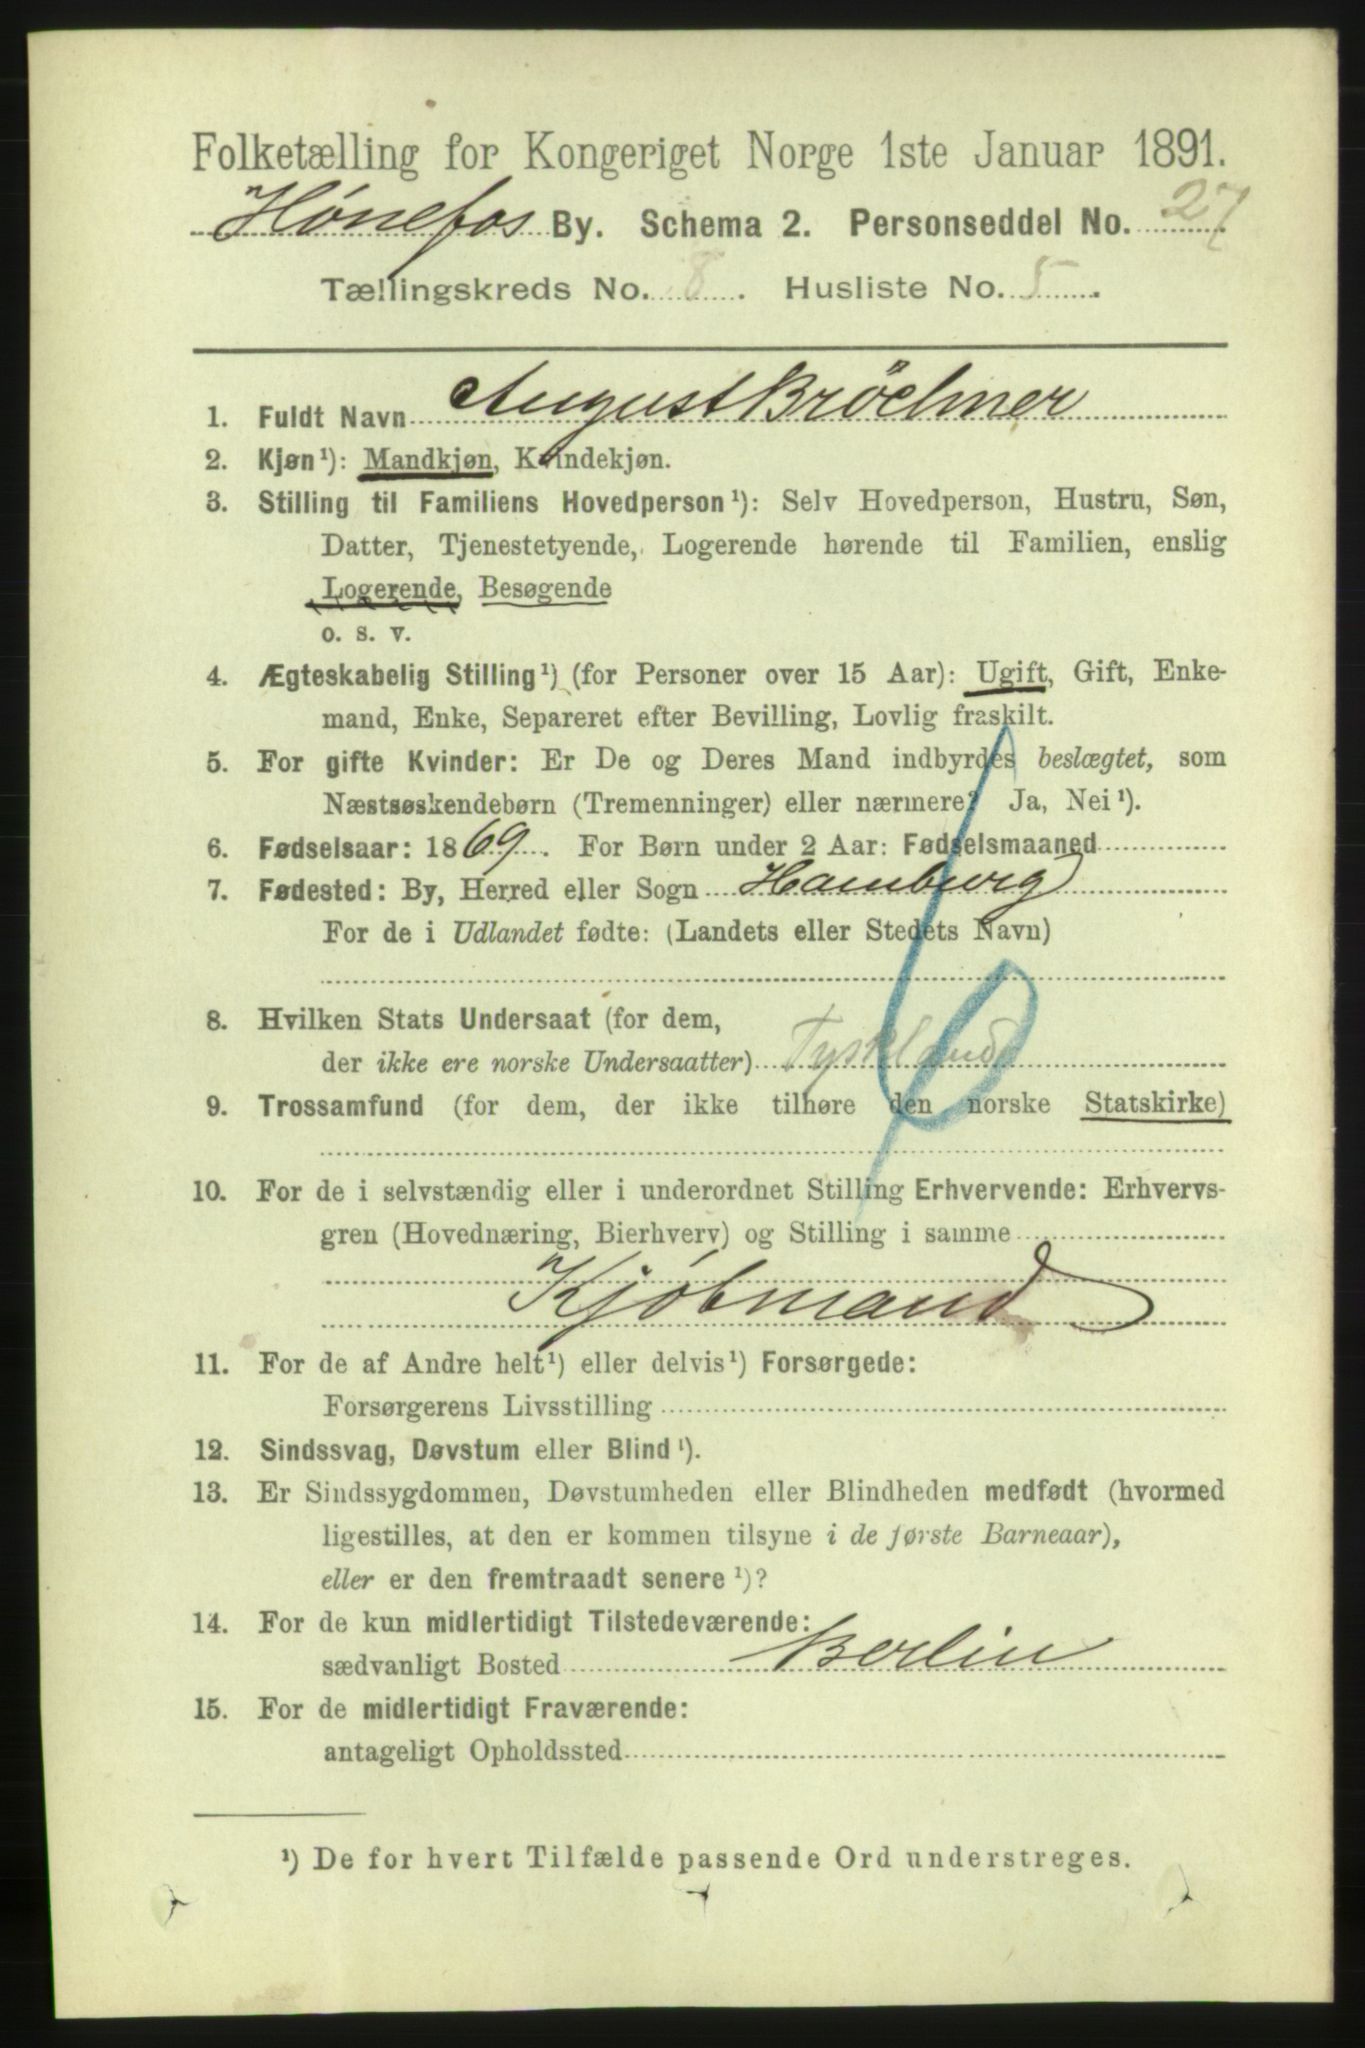 Folketælling for Kongeriget Norge 1ste Januar 1891.
Hönefos By. Schema 2. Personseddel No. 27
Tællingskreds No. 8. Husliste No. 5.
1. Fuldt Navn August Bröchner
2. Kjøn¹): Mandkjøn, Kvindekjøn.
3. Stilling til Familiens Hovedperson¹): Selv Hovedperson, Hustru, Søn,
Datter, Tjenestetyende, Logerende hørende til Familien, enslig
Logerende, Besøgende
o. s. v.
4. Ægteskabelig Stilling¹) (for Personer over 15 Aar): Ugift, Gift, Enke-
mand, Enke, Separeret efter Bevilling, Lovlig fraskilt.
5. For gifte Kvinder: Er De og Deres Mand indbyrdes beslægtet, som
Næstsøskendebørn (Tremenninger) eller nærmere? Ja, Nei¹).
6. Fødselsaar: 1869. For Børn under 2 Aar: Fødselsmaaned
7. Fødested: By, Herred eller Sogn Hamburg
For de i Udlandet fødte: (Landets eller Stedets Navn)
8. Hvilken Stats Undersaat (for dem,
der ikke ere norske Undersaatter) Tyskland
9. Trossamfund (for dem, der ikke tilhøre den norske Statskirke)
10. For de i selvstændig eller i underordnet Stilling Erhvervende: Erhvervs-
gren (Hovednæring, Bierhverv) og Stilling i samme
Kjöbmand
11. For de af Andre helt¹) eller delvis¹) Forsørgede:
Forsørgerens Livsstilling
12. Sindssvag, Døvstum eller Blind¹).
13. Er Sindssygdommen, Døvstumheden eller Blindheden medfødt (hvormed
ligestilles, at den er kommen tilsyne i de første Barneaar),
eller er den fremtraadt senere¹)?
14. For de kun midlertidigt Tilstedeværende:
sædvanligt Bosted Berlin
15. For de midlertidigt Fraværende:
antageligt Opholdssted
¹) De for hvert Tilfælde passende Ord understreges.